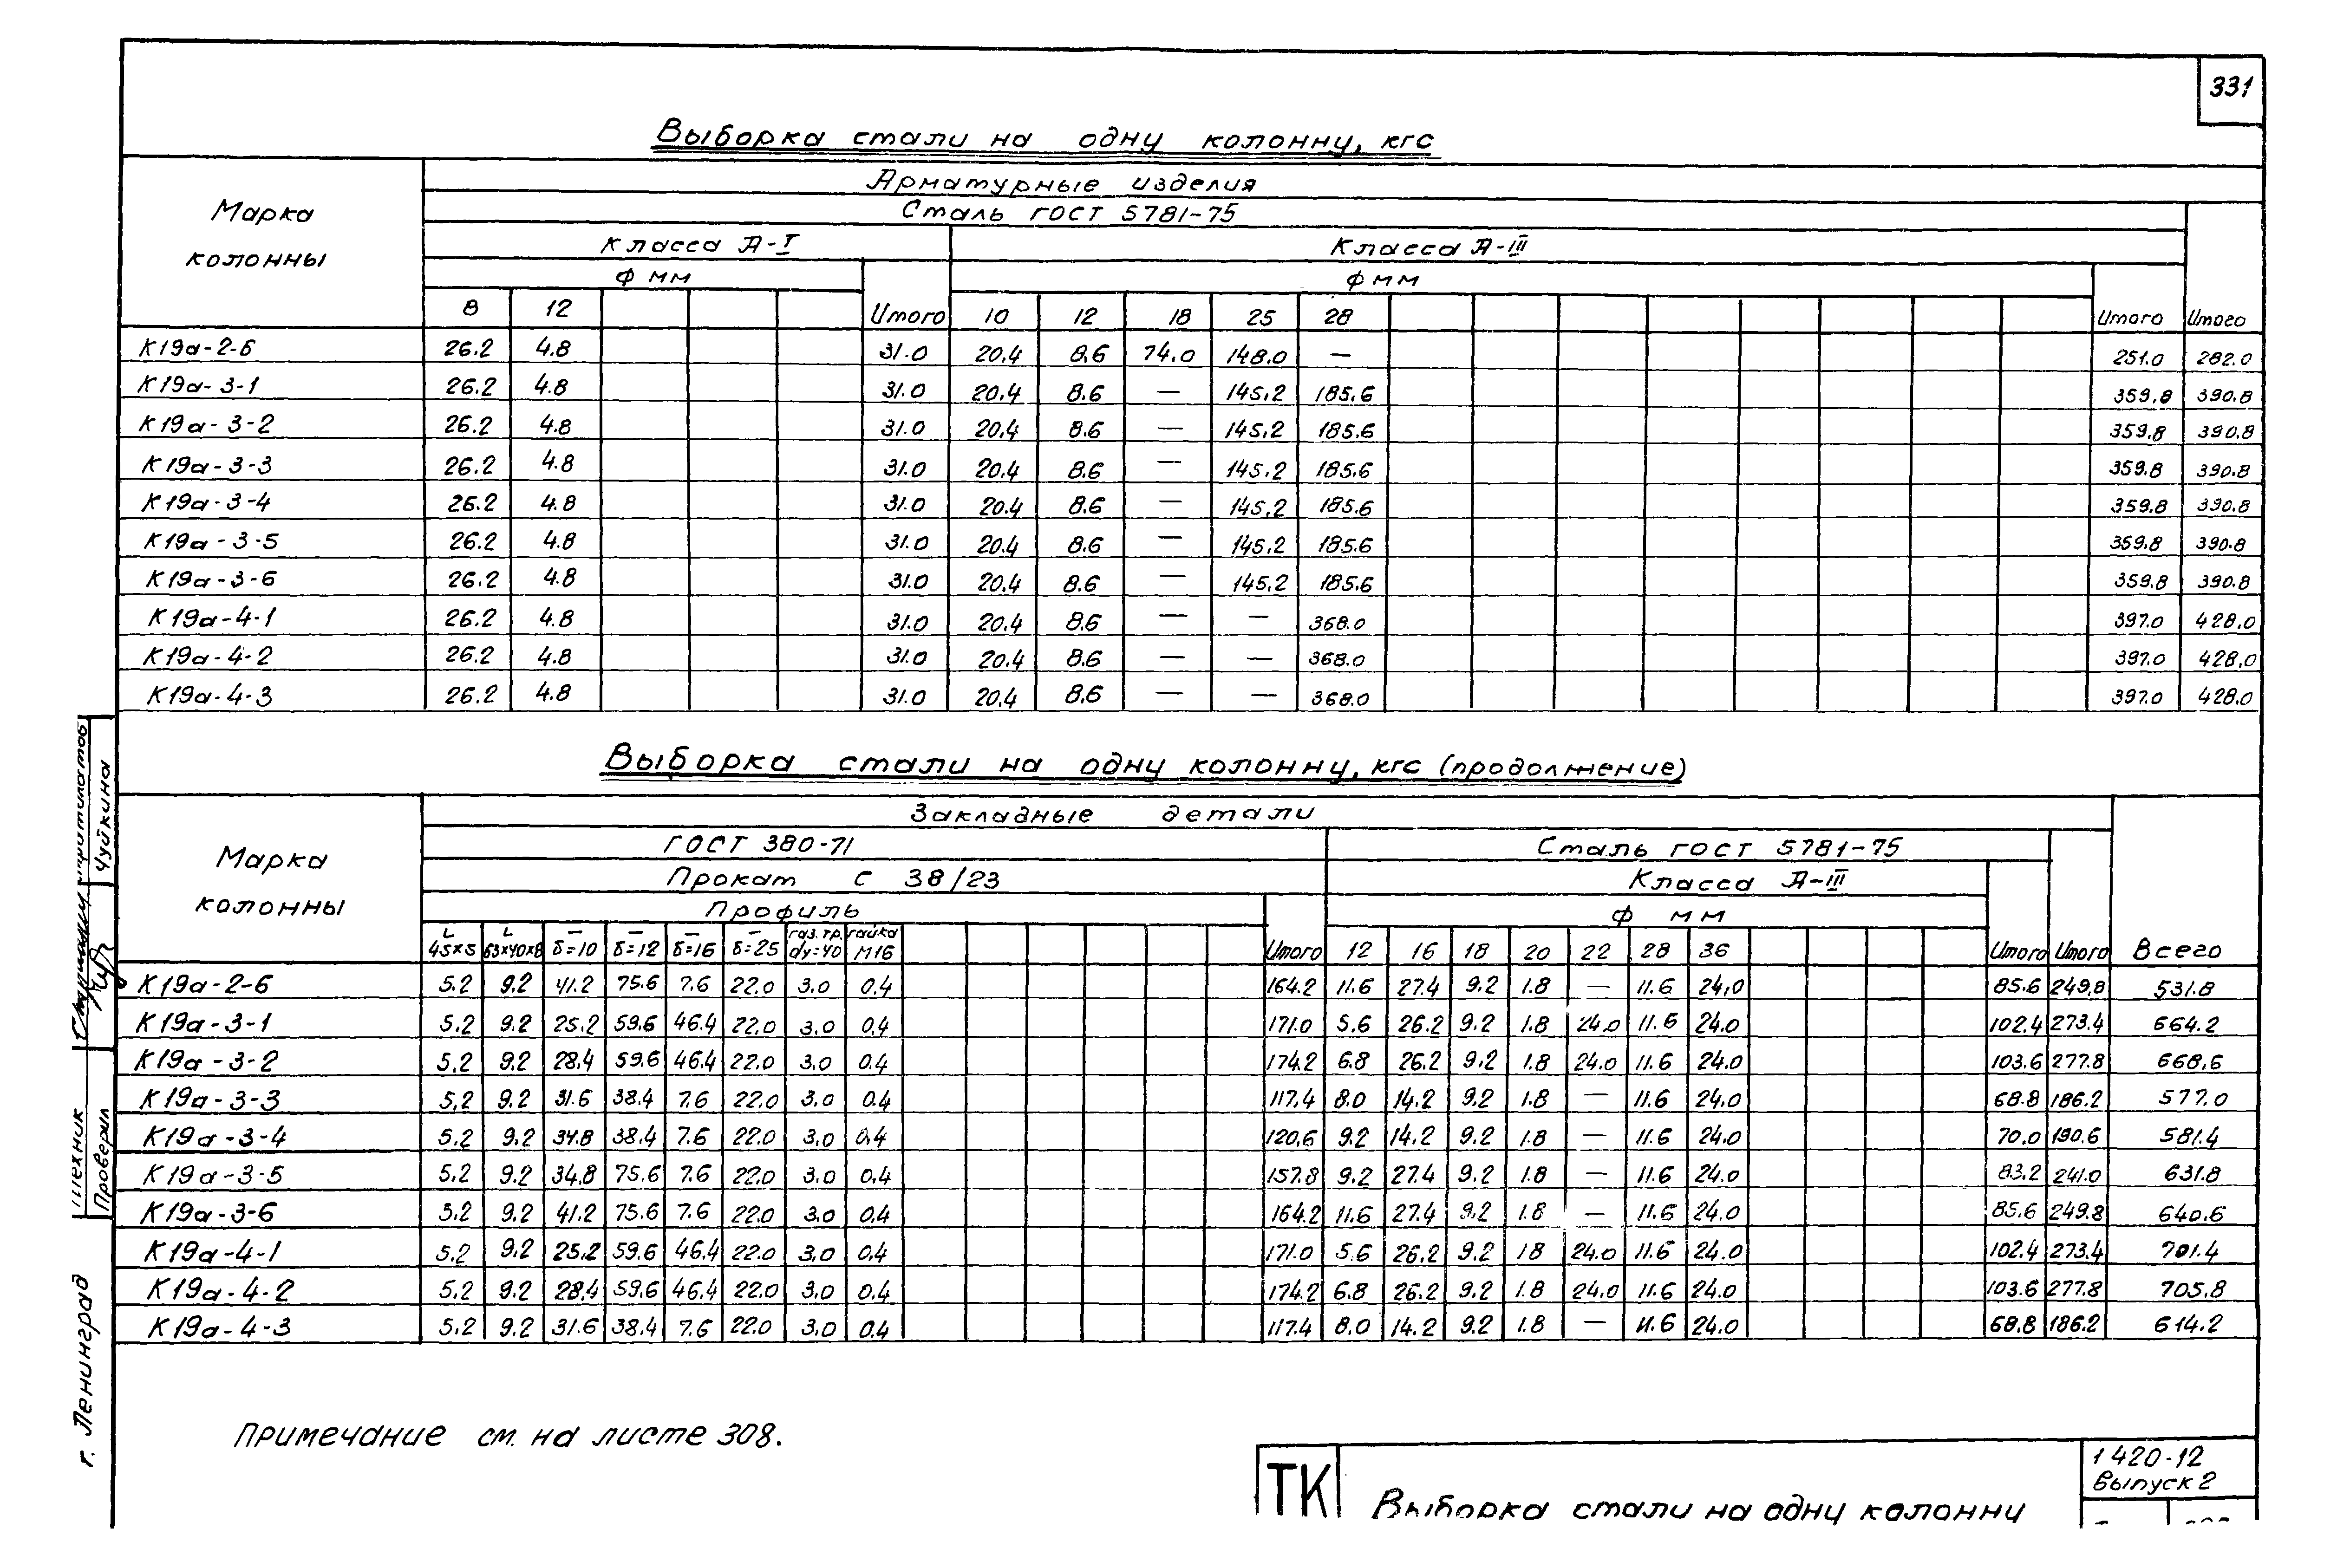 331
Выборка стали на одну колонну, кгс
Марка колонны
Арматурные изделия
Сталь ГОСТ 5781-75
Класса А-I Класса А-III
Ф мм Ф мм
8 12 Итого 10 12 18 25 28 Итого Итого
К19а-2-6 26.2 4.8 31.0 20.4 8.6 74.0 148.0 — 251.0 282.0
К19а-3-1 26.2 4.8 31.0 20.4 8.6 — 145.2 185.6 359.8 390.8
К19а-3-2 26.2 4.8 31.0 20.4 8.6 — 145.2 185.6 359.8 390.8
К19а-3-3 26.2 4.8 31.0 20.4 8.6 — 145.2 185.6 359.8 390.8
К19а-3-4 26.2 4.8 31.0 20.4 8.6 — 145.2 185.6 359.8 390.8
К19а-3-5 26.2 4.8 31.0 20.4 8.6 — 145.2 185.6 359.8 390.8
К19а-3-6 26.2 4.8 31.0 20.4 8.6 — 145.2 185.6 359.8 390.8
К19а-4-1 26.2 4.8 31.0 20.4 8.6 — — 368.0 397.0 428.0
К19а-4-2 26.2 4.8 31.0 20.4 8.6 — — 368.0 397.0 428.0
К19а-4-3 26.2 4.8 31.0 20.4 8.6 — — 368.0 397.0 428.0
Выборка стали на одну колонну, кгс (продолжение)
Марка колонны
Закладные детали
ГОСТ 380-71 Сталь ГОСТ 5781-75
Прокат С 38/23 Класса А-III
Профиль Ф мм
L 45×5 L 63×40×8 — δ=10 — δ=12 — δ=16 — δ=25 газ.тр. dy=40 гайка М16 Итого 12 16 18 20 22 28 36 Итого Итого Всего
К19а-2-6 5.2 9.2 41.2 75.6 7.6 22.0 3.0 0.4 164.2 11.6 27.4 9.2 1.8 — 11.6 24.0 85.6 249.8 531.8
К19а-3-1 5.2 9.2 25.2 59.6 46.4 22.0 3.0 0.4 171.0 5.6 26.2 9.2 1.8 24.0 11.6 24.0 102.4 273.4 664.2
К19а-3-2 5.2 9.2 28.4 59.6 46.4 22.0 3.0 0.4 174.2 6.8 26.2 9.2 1.8 24.0 11.6 24.0 103.6 277.8 668.6
К19а-3-3 5.2 9.2 31.6 38.4 7.6 22.0 3.0 0.4 117.4 8.0 14.2 9.2 1.8 — 11.6 24.0 68.8 186.2 577.0
К19а-3-4 5.2 9.2 34.8 38.4 7.6 22.0 3.0 0.4 120.6 9.2 14.2 9.2 1.8 — 11.6 24.0 70.0 190.6 581.4
К19а-3-5 5.2 9.2 34.8 75.6 7.6 22.0 3.0 0.4 157.8 9.2 27.4 9.2 1.8 — 11.6 24.0 83.2 241.0 631.8
К19а-3-6 5.2 9.2 41.2 75.6 7.6 22.0 3.0 0.4 164.2 11.6 27.4 9.2 1.8 — 11.6 24.0 85.6 249.8 640.6
К19а-4-1 5.2 9.2 25.2 59.6 46.4 22.0 3.0 0.4 171.0 5.6 26.2 9.2 18 24.0 11.6 24.0 102.4 273.4 701.4
К19а-4-2 5.2 9.2 28.4 59.6 46.4 22.0 3.0 0.4 174.2 6.8 26.2 9.2 1.8 24.0 11.6 24.0 103.6 277.8 705.8
К19а-4-3 5.2 9.2 31.6 38.4 7.6 22.0 3.0 0.4 117.4 8.0 14.2 9.2 1.8 — 11.6 24.0 68.8 186.2 614.2
Примечание см. на листе 308.
ТК
Выборка стали на одну колонну
1 420-12
Выпуск 2
Чуйкина
Техник
Проверил
г. Ленинград